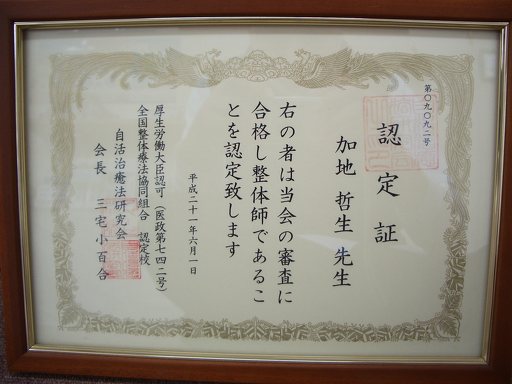 第〇九〇九二号
認定証
加地 哲生 先生
右の者は当会の審査に
合格し整体師であるこ
とを認定致します
平成二十一年六月一日
厚生労働大臣認可(医政第七四二号)
全国整体療法協同組合 認定校
自活治癒法研究会
会長 三宅小百合